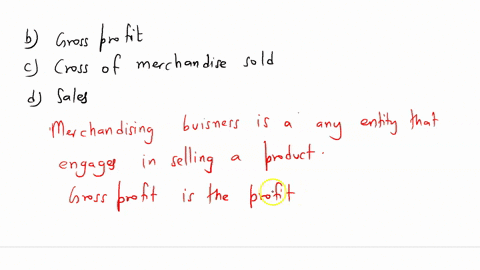 b) Gross profit
c) Cross of merchandise sold
d) Sales
Merchandising buisness is a any entity that
engages in selling a product.
Gross profit is the profit